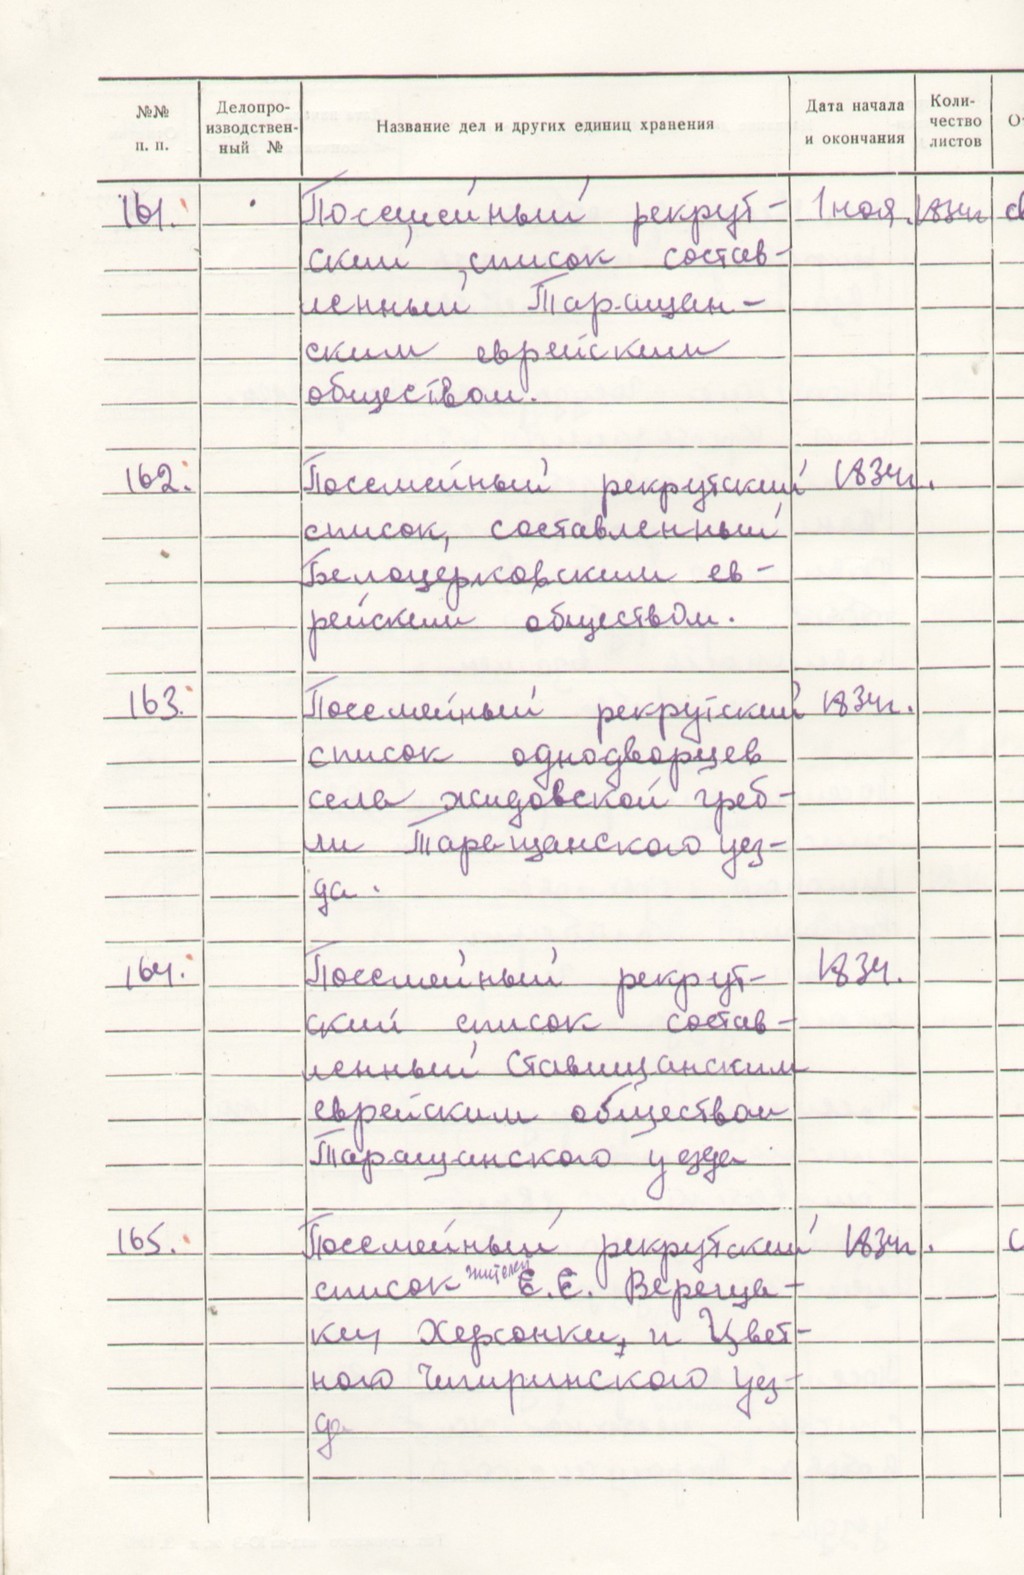 №№ п. п.
Делопро-
изводствен-
ный №
Название дел и других единиц хранения
Дата начала
и окончания
Коли-
чество
листов
161. Посемейный рекрут- 1 ноя. 1834г.
ский список состав-
ленный Таращан-
ским еврейским
обществом.
162. Посемейный рекрутский 1834г.
список, составленный
Белоцерковским ев-
рейским обществом.
163. Посемейный рекрутский 1834г.
список однодворцев
села Жидовской греб-
ли Таращанского уез-
да.
164. Посемейный рекрут- 1834.
ский список состав-
ленный Ставищанским
еврейским обществом
Таращанского уезда
165. Посемейный рекрутский 1834г.
список жителей с.с. Вереща-
ки, Херсонки, и Цвет-
ного Чигиринского уез-
да